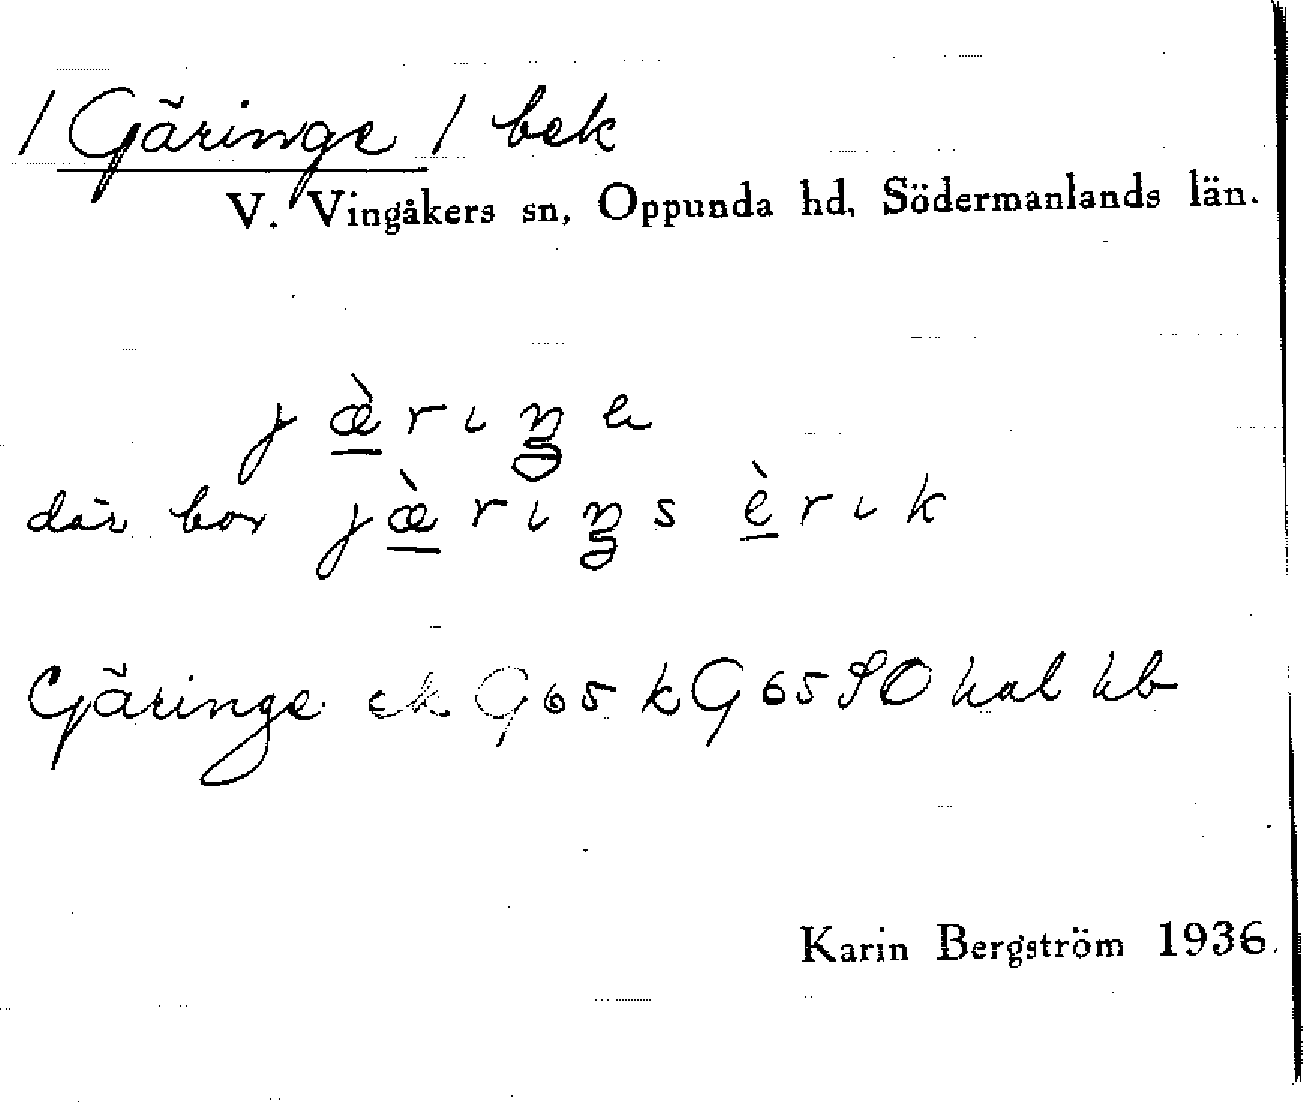 / Gäringe / bek
V. Vingåkers sn, Oppunda hd, Södermanlands län.
j æ̀ r ɩ ŋ e
där bor jæ̀rɩŋs èrɩk
Gäringe ek G65 kG65 SO hal hb
Karin Bergström 1936.